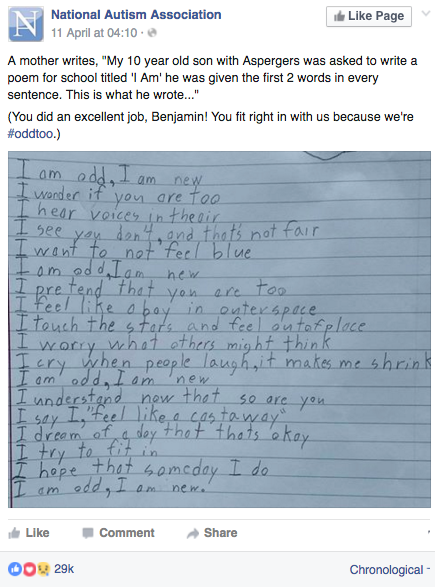 National Autism Association
11 April at 04:10 ·
Like Page
A mother writes, "My 10 year old son with Aspergers was asked to write a
poem for school titled 'I Am' he was given the first 2 words in every
sentence. This is what he wrote..."
(You did an excellent job, Benjamin! You fit right in with us because we're
#oddtoo.)
I am odd, I am new
I wonder if you are too
I hear voices in theair
I see you don't, and that's not fair
I want to not feel blue
I am odd, I am new
I pretend that you are too
I feel like a boy in outerspace
I touch the stars and feel outofplace
I worry what others might think
I cry when people laugh, it makes me shrink
I am odd, I am new
I understand now that so are you
I say I, "feel like a castaway"
I dream of a day that thats okay
I try to fit in
I hope that someday I do
I am odd, I am new.
Like Comment Share
29k
Chronological